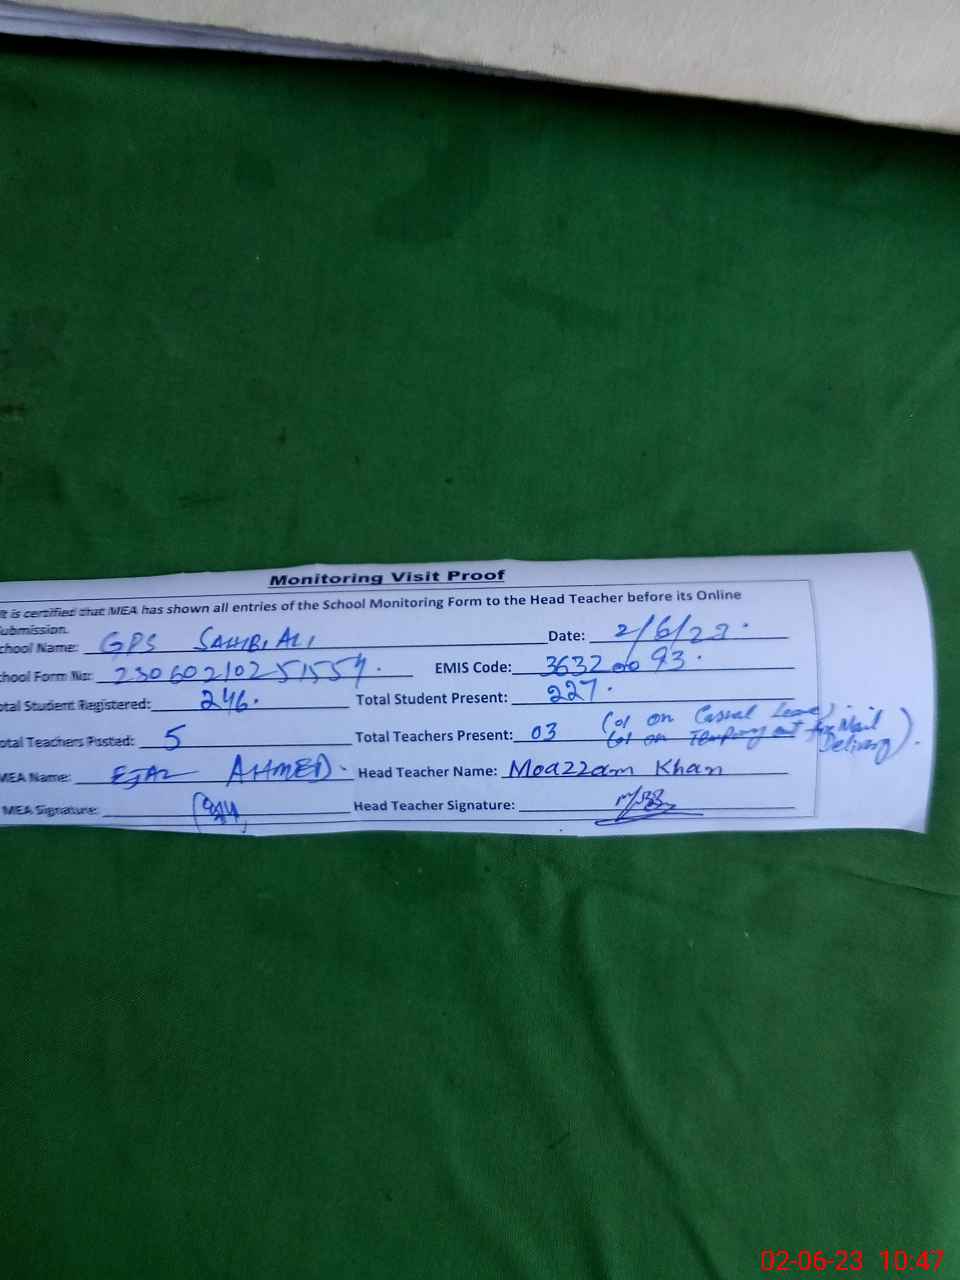 Monitoring Visit Proof
It is certified that MEA has shown all entries of the School Monitoring Form to the Head Teacher before its Online
ubmission.
chool Name: GPS SAHIBI ALI Date: 2/6/23.
chool Form No: 23060210251554. EMIS Code: 36320093.
otal Student Registered: 246. Total Student Present: 227.
otal Teachers Posted: 5 Total Teachers Present: 03 (01 on Casual Leave).
(01 on Temporary out for Mail Delivery).
MEA Name: EJAZ AHMED. Head Teacher Name: Moazzam Khan
MEA Signature: Head Teacher Signature:
02-06-23 10:47